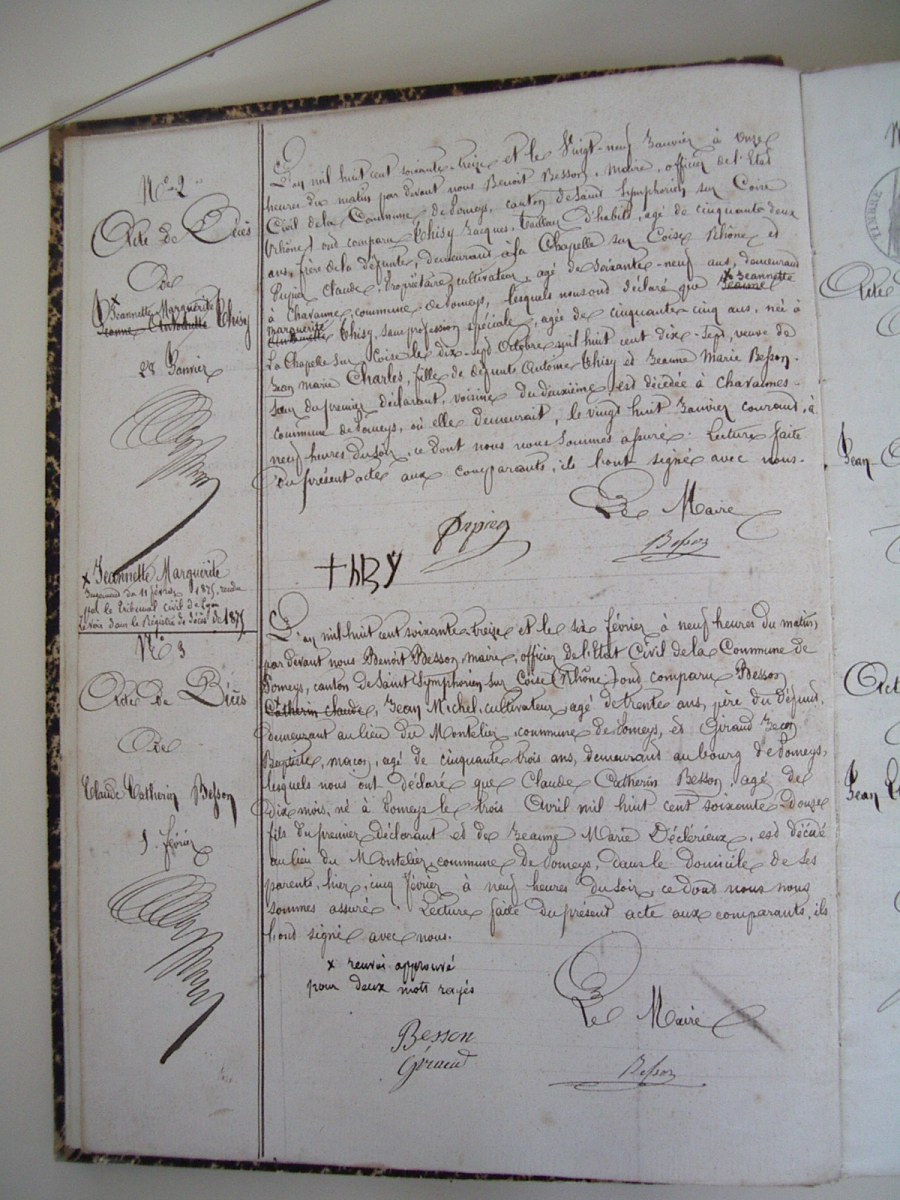 No 2
Acte de Décès
De
x Jeannette Marguerite
Jeanne Antoinette Thisy
28 Janvier
x Jeannette Marguerite
Jugement du 11 février 1875, rendu
par le Tribunal civil de Lyon
Voir dans le Registre de décès de 1875
L'an mil huit cent soixante-treize et le vingt-neuf Janvier à onze
heures du matin par devant nous Benoit Besson, Maire, officier de l'Etat
Civil de la Commune de Pomeys, canton de Saint Symphorien sur Coise
(Rhône) ont comparu Thisy Jacques, tailleur d'habits, agé de cinquante deux
ans, frère de la défunte, demeurant à la Chapelle sur Coise Rhône et
Pupier Claude, Propriétaire cultivateur, agé de soixante-neuf ans, demeurant
à Chavanne, commune de Pomeys, lesquels nous ont déclaré que Jeanne x Jeannette
Antoinette Marguerite Thisy, sans profession spéciale, agée de cinquante cinq ans, née à
La Chapelle sur Coise le dix-sept Octobre mil huit cent dix-sept, veuve de
Jean Marie Charles, fille de défunts Antoine Thisy et Jeanne Marie Besson.
Sœur du premier déclarant, voisine du deuxième, est décédée à Chavannes-
commune de Pomeys, où elle demeurait, le vingt huit Janvier courant, à
neuf heures du soir, ce dont nous nous sommes assuré. Lecture faite
du présent acte aux comparants, ils l'ont signé avec nous.
Le Maire
Pupier
Besson
thizy
No 3
Acte de Décès
De
Claude Catherin Besson
5 février
L'an mil huit cent soixante-treize et le six février à neuf heures du matin,
par devant nous Benoît Besson, maire, officier de l'Etat Civil de la Commune de
Pomeys, canton de Saint Symphorien sur Coise (Rhône) ont comparu Besson
Catherin Claude, Jean Michel, cultivateur, agé de trente ans, père du défunt,
demeurant au lieu du Montelier, commune de Pomeys, et Giraud Jean
Baptiste, maçon, agé de cinquante trois ans, demeurant au bourg de Pomeys,
lesquels nous ont déclaré que Claude Catherin Besson, agé de
dix mois, né à Pomeys le trois Avril mil huit cent soixante-douze
fils du premier déclarant et de Jeanne Marie Déclérieux, est décédé
au lieu du Montelier, commune de Pomeys, dans le domicile de ses
parents, hier, cinq février à neuf heures du soir, ce dont nous nous
sommes assuré. Lecture faite du présent acte aux comparants, ils
l'ont signé avec nous.
x renvoi approuvé
pour deux mots rayés
Le Maire
Besson
Giraud
Besson